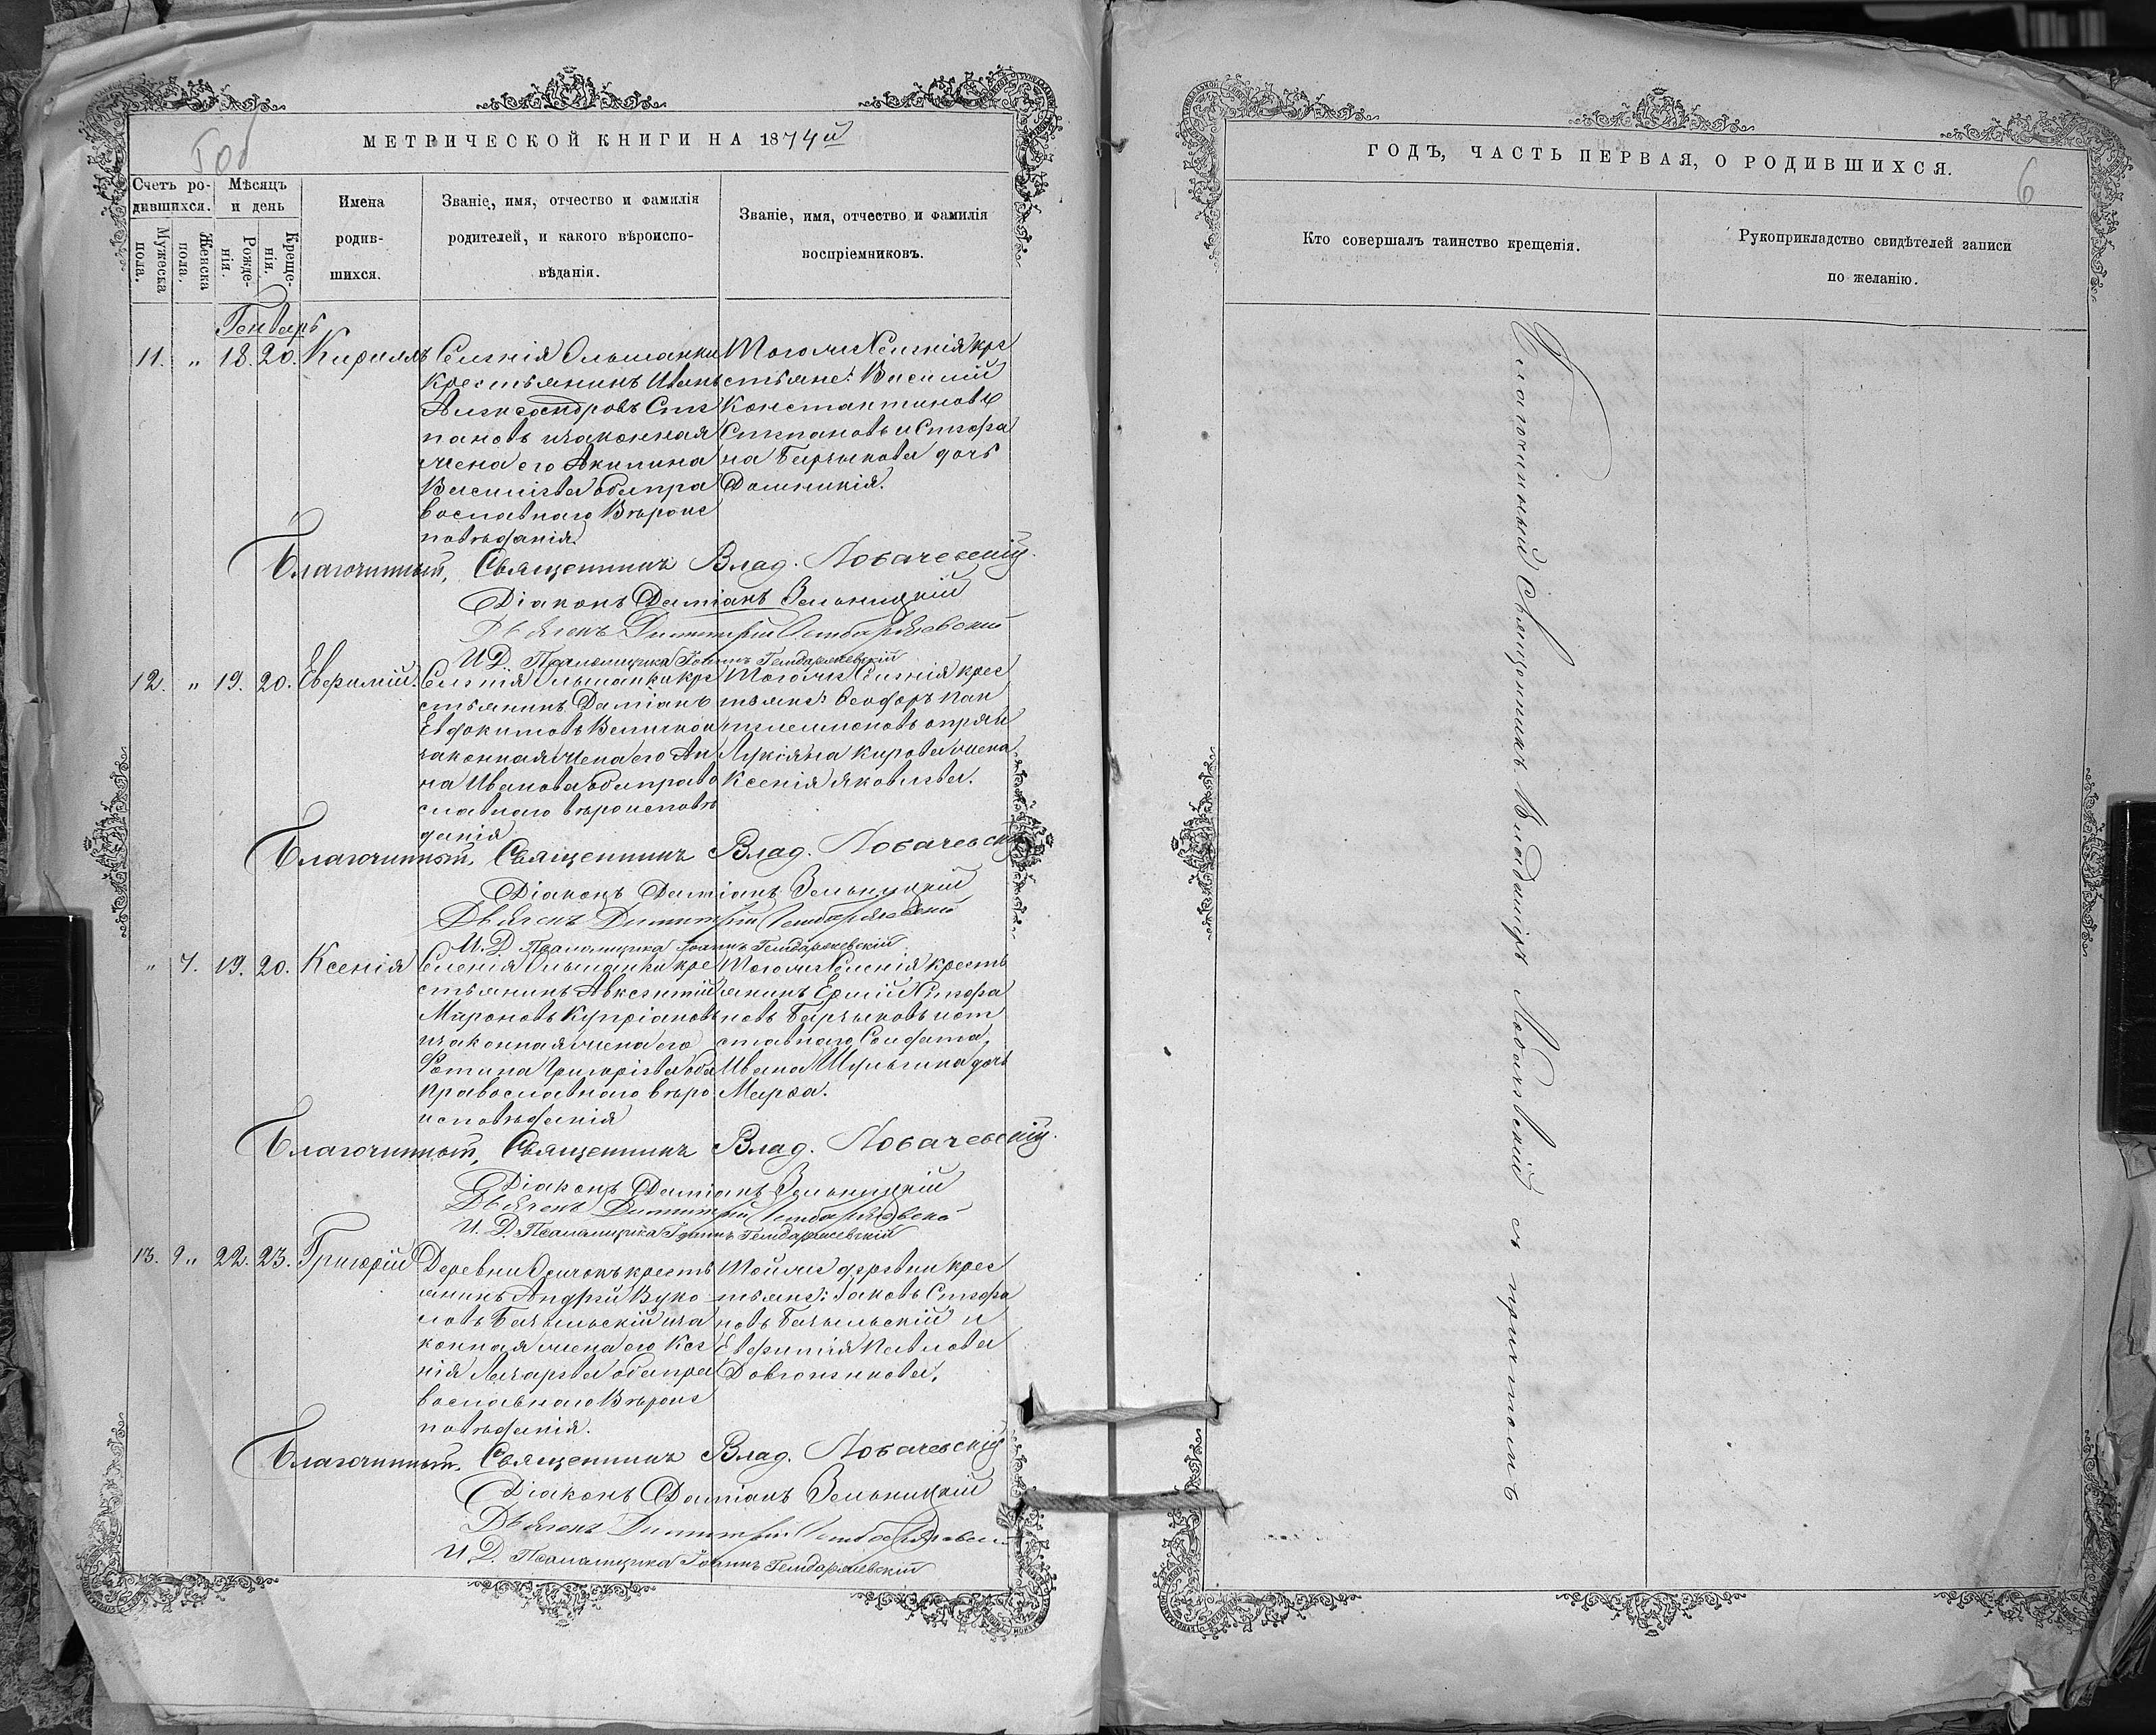 МЕТРИЧЕСКОЙ КНИГИ НА 1874й
Год
Счетъ ро-
дившихся.
Мужеска пола.
Женска пола.
Мѣсяцъ
и день
Рожде-
нія.
Креще-
нія.
Имена
родив-
шихся.
Званіе, имя, отчество и фамилія
родителей, и какого вѣроиспо-
вѣданія.
Званіе, имя, отчество и фамилія
воспріемниковъ.
Генварь
11. „ 18. 20. Кириллъ
Селенія Ольшанки
Крестьянинъ Иванъ
Александровъ Сте
пановъ и законная
жена его Акилина
Васильева оба пра
вославнаго Вѣроис
повѣданія.
Того же Селенія кре
стьяне: Василій
Константиновъ
Степановъ и Стефа
на Барчыкова дочь
Домникія.
Благочинный, Священникъ Влад. Лобачевскій.
Діаконъ Даміанъ Зельницкій
Дьячекъ Димитрій
И. Д. Псаломщика Іоаннъ
12. „ 19. 20. Евфимій.
Селенія Ольшанки кре
стьянинъ Даміанъ
Евдокимовъ
законная жена его Ан
на Иванова оба право
славнаго вѣроисповѣ
данія
Того же Селенія крес
тьяне: Ѳеодоръ Пан
телеимоновъ
Лукіяна Кирова жена
Ксенія Яковлева.
Благочинный, Священникъ Влад. Лобачевскій
Діаконъ Даміанъ Зельницкій
Дьячекъ Димитрій
И. Д. Псаломщика Іоаннъ
„ 7. 19. 20. Ксенія
Селенія Ольшанки кре
стьянинъ Авксентій
Мироновъ Купріановъ
и законная жена его
Фотина Григорьева оба
православнаго вѣро
исповѣданія
Того же Селенія кресть
янинъ Ермій Стефа
новъ Барчыковъ и от
ставнаго Солдата
Ивана Шульгина дочь
Марѳа.
Благочинный, Священникъ Влад. Лобачевскій.
Діаконъ Даміанъ Зельницкій
Дьячекъ Димитрій
И. Д. Псаломщика Іоаннъ
13. „ 22. 23. Григорій
Деревни кресть
янинъ Андрей Вуко
ловъ Бачыльскій и за
конная жена его Ксе
нія Лазарева оба пра
вославнаго Вѣроис
повѣданія.
Той же деревни крес
тьяне: Іаковъ Стефа
новъ Бачыльскій и
Евфимія Павлова
Благочинный, Священникъ Влад. Лобачевскій
Діаконъ Даміанъ Зельницкій
Дьячекъ Димитрій
И. Д. Псаломщика Іоаннъ
ГОДЪ, ЧАСТЬ ПЕРВАЯ, О РОДИВШИХСЯ.
6
Кто совершалъ таинство крещенія.
Рукоприкладство свидѣтелей записи
по желанію.
Благочинный Священникъ Владиміръ Лобачевскій съ причтомъ